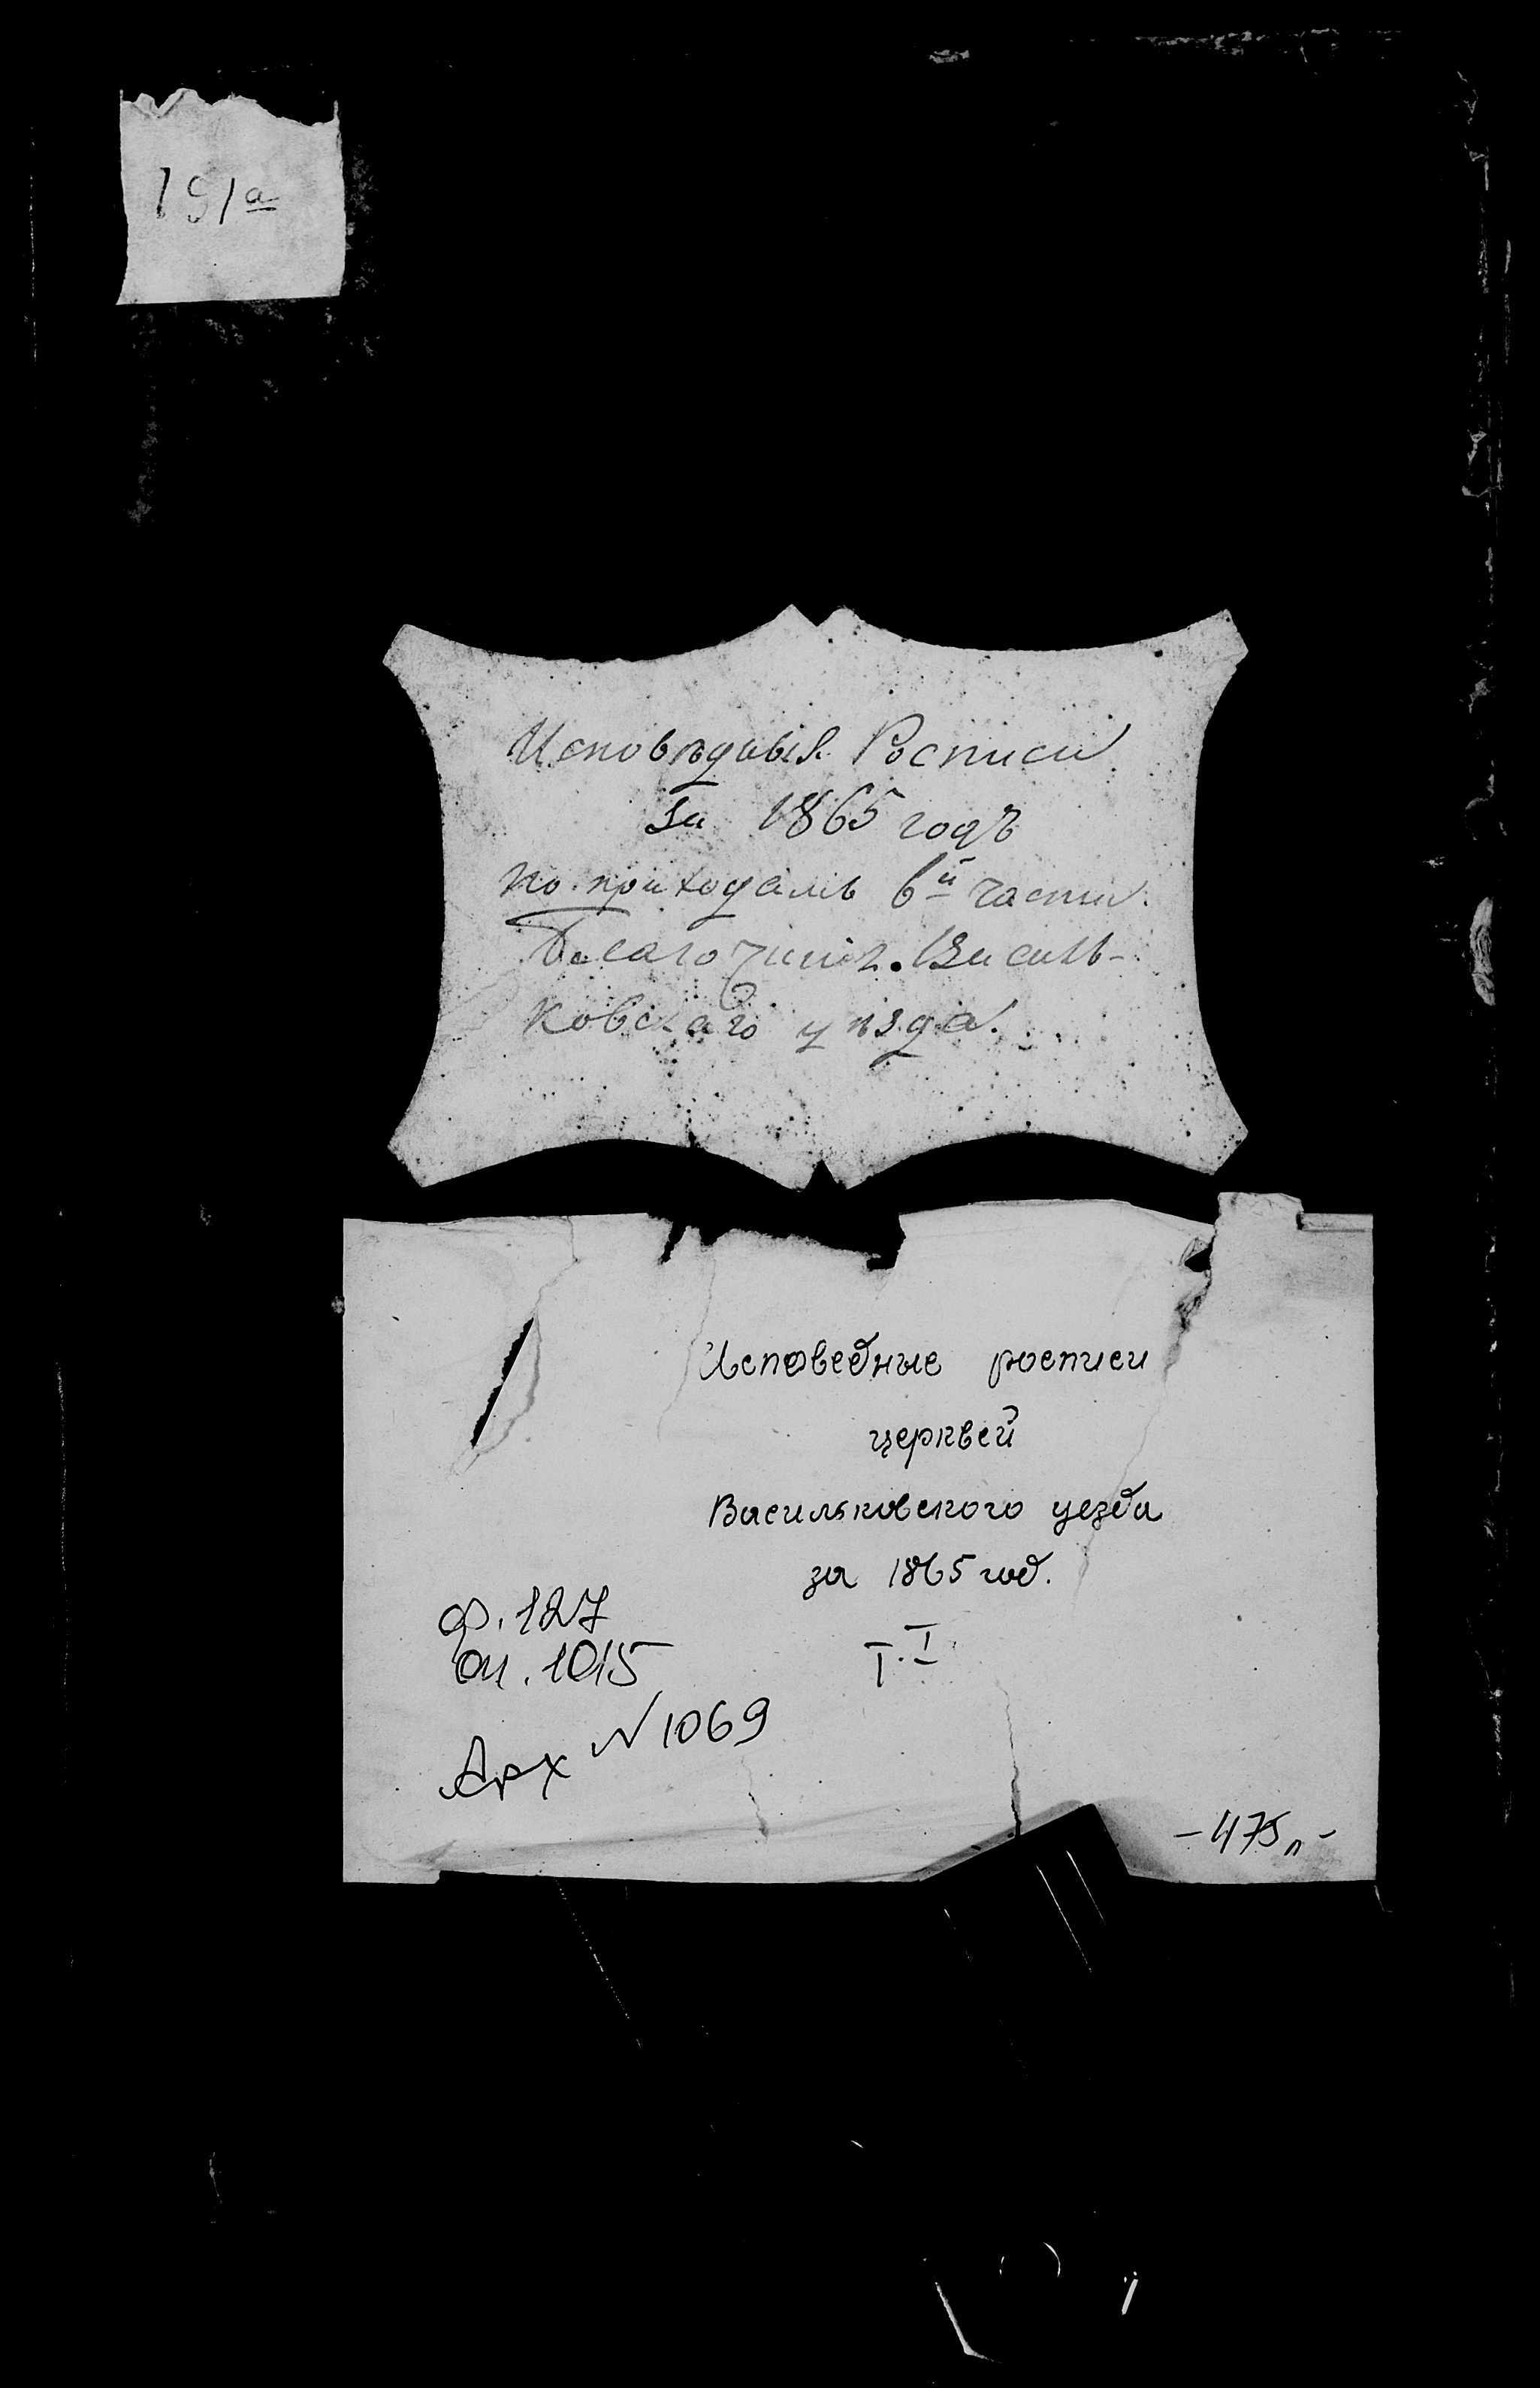 191а
Исповѣдныя Росписи
За 1865 годъ
по приходамъ 6й части
Благочинія Василь-
ковскаго уѣзда.
Исповедные росписи
церквей
Васильковского уезда
за 1865 год.
Т. I
ф. 127
оп. 1015
Арх №1069
- 475 л -